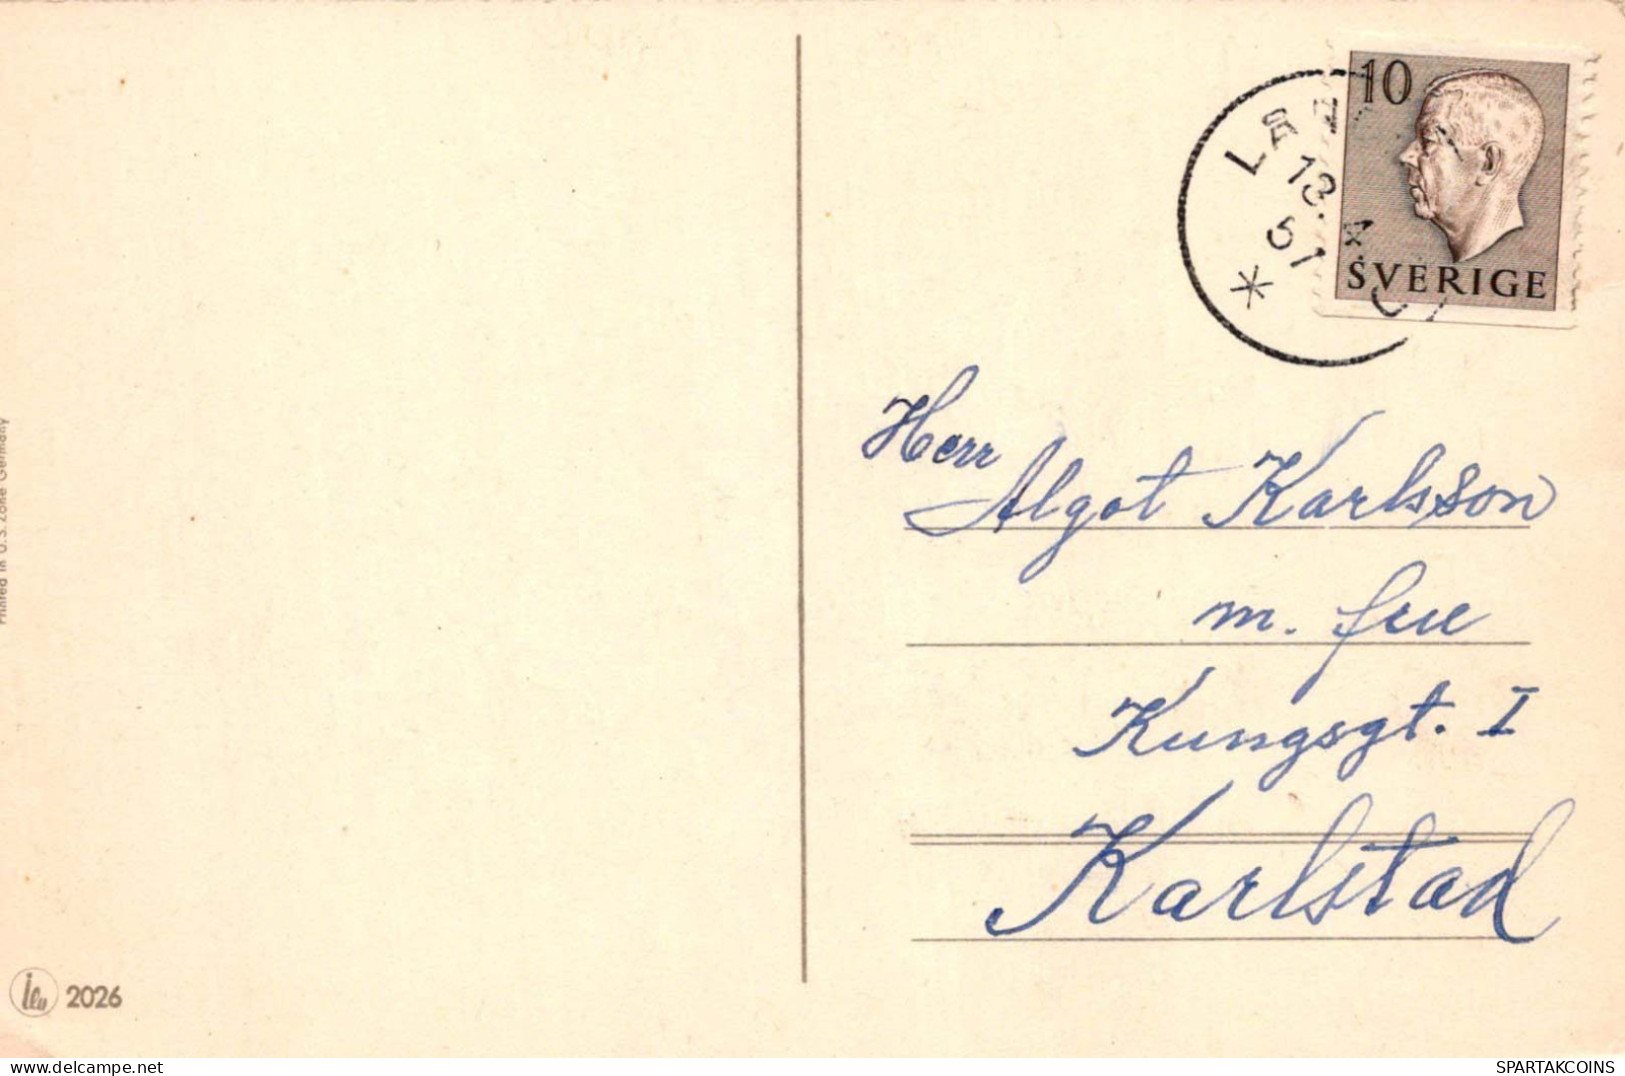 10
SVERIGE
13.4
57
*
Herr
Algot Karlsson
m. fru
Kungsgt. I
Karlstad
Printed in U.S. Zone Germany
ilu 2026
www.delcampe.net
SPARTAKCOINS